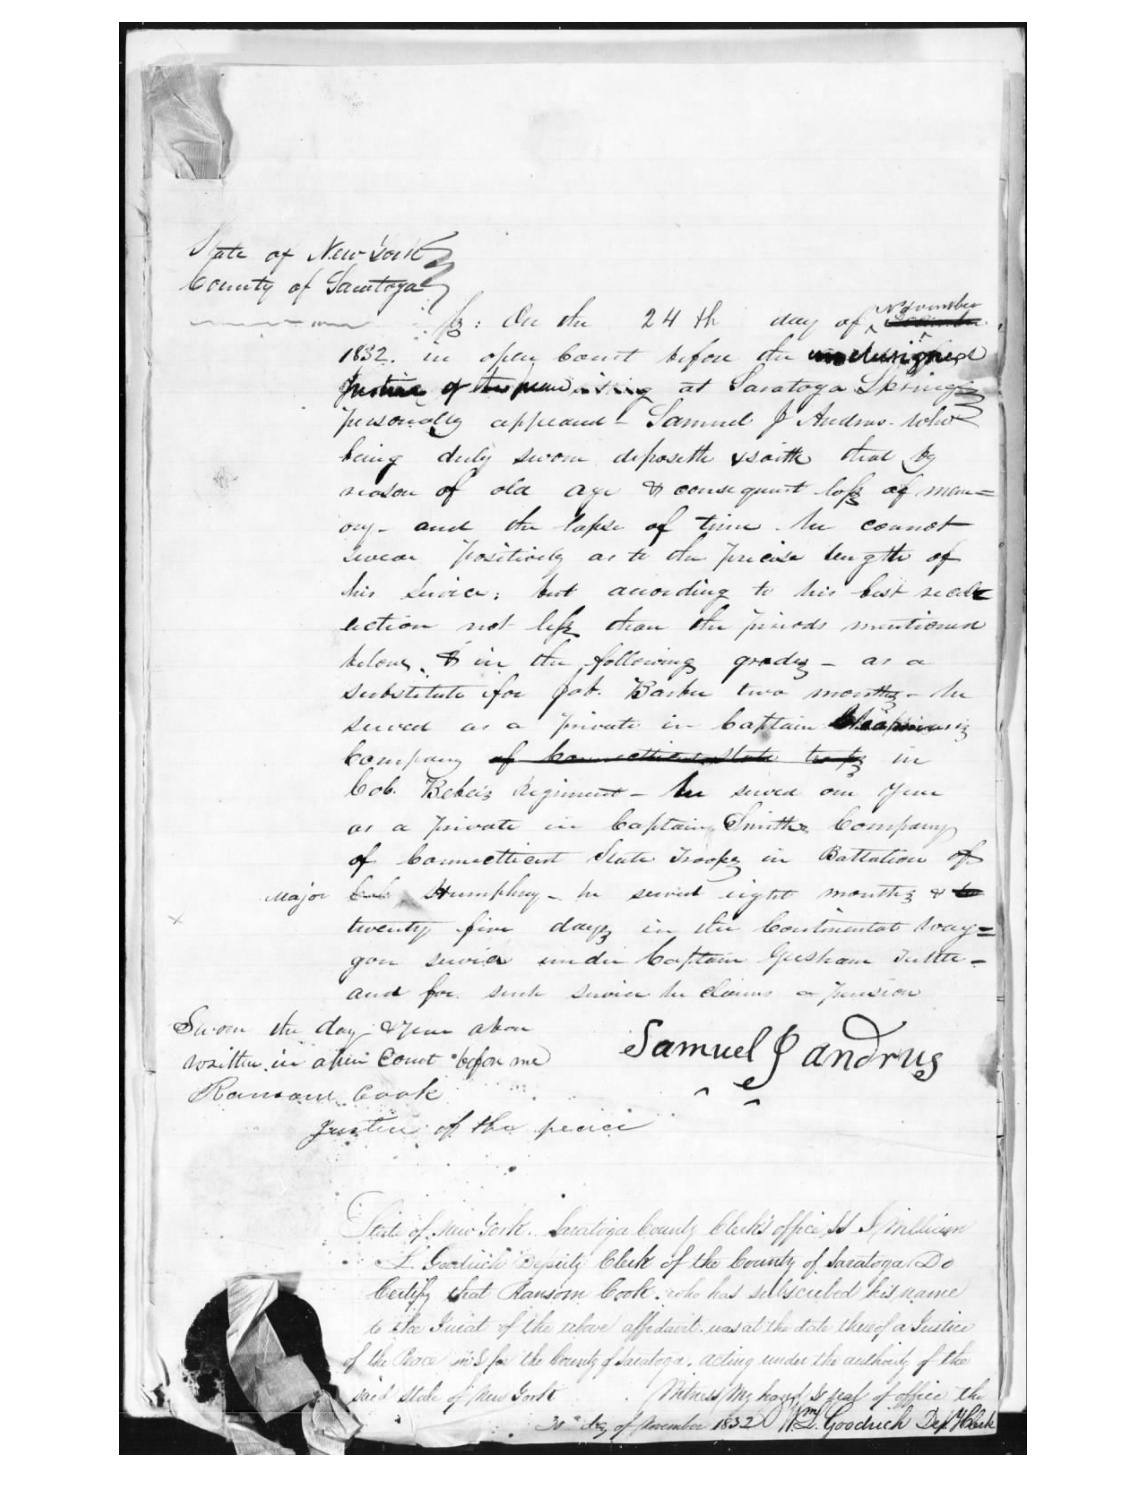 State of New York
County of Saratoga
Ss: On the 24th day of November
1832. in open Court before the undersigned
Justice of the peace sitting at Saratoga Springs
personally appeared Samuel J Andrus. who
being duly sworn deposeth & saith that by
reason of old age & consequent loss of mem=
ory - and the lapse of time he cannot
swear positively as to the precise length of
his service; but according to his best recoll
ection not less than the periods mentioned
below. & in the following grades - as a
substitute for Job. Barker two months - he
served as a private in Captain
Company of Connecticut State troops in
Col. Bebees Regiment - he served one year
as a private in Captain Smiths Company
of Connecticut State Troops in Battalion of
Major Col. Humphrey - he served eight months &
twenty five days in the Continental wag=
gon service under Captain Gersham Tuttle -
and for such service he claims a pension
Sworn the day & year above
written in open Court before me
Ransom Cook
Justice of the peace
Samuel J andrus
State of New York. Saratoga County Clerk's office SS I William
L. Goodrich Deputy Clerk of the County of Saratoga Do
Certify that Ransom Cook who has subscribed his name
to the Jurat of the above affidavit. was at the date thereof a Justice
of the Peace in & for the County of Saratoga. acting under the authority of the
said State of New York Witness My hand & seal of office the
30th day of November 1832 Wm L. Goodrich Depy Clerk